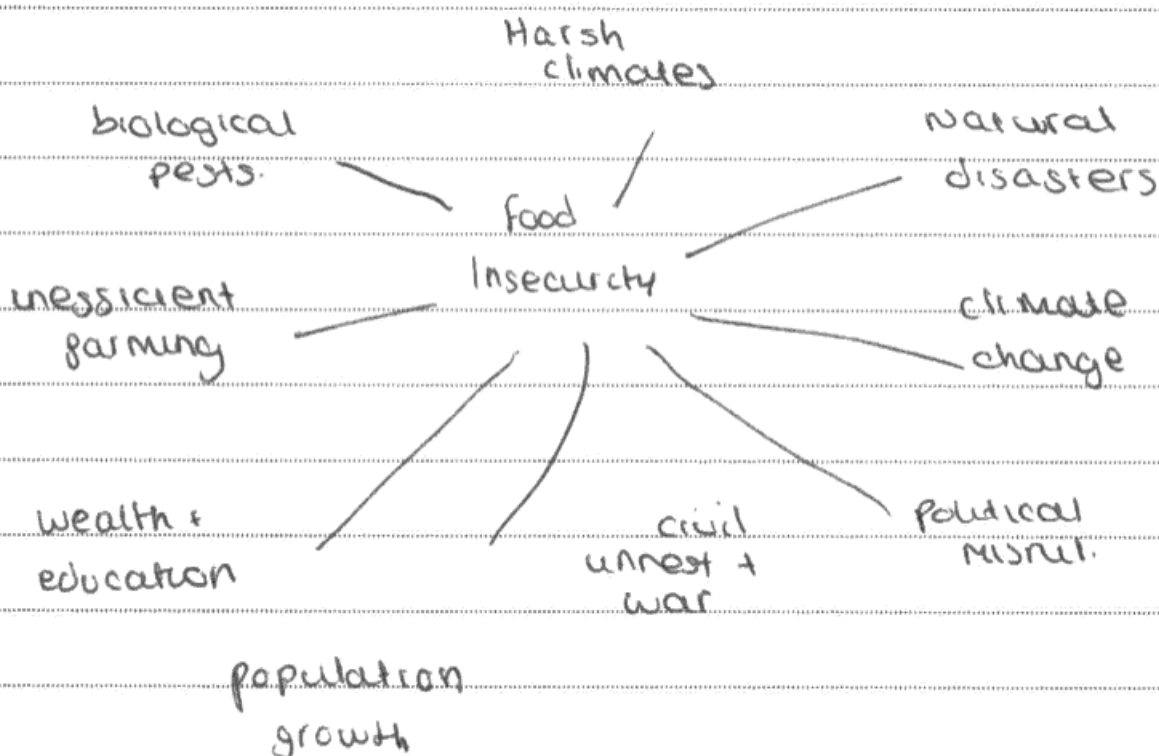 Harsh
climates
biological
pests.
Natural
disasters
food
Insecurcty
inessicient
farming
climate
change
wealth +
education
civil
unrest +
war
political
misrul.
population
growth